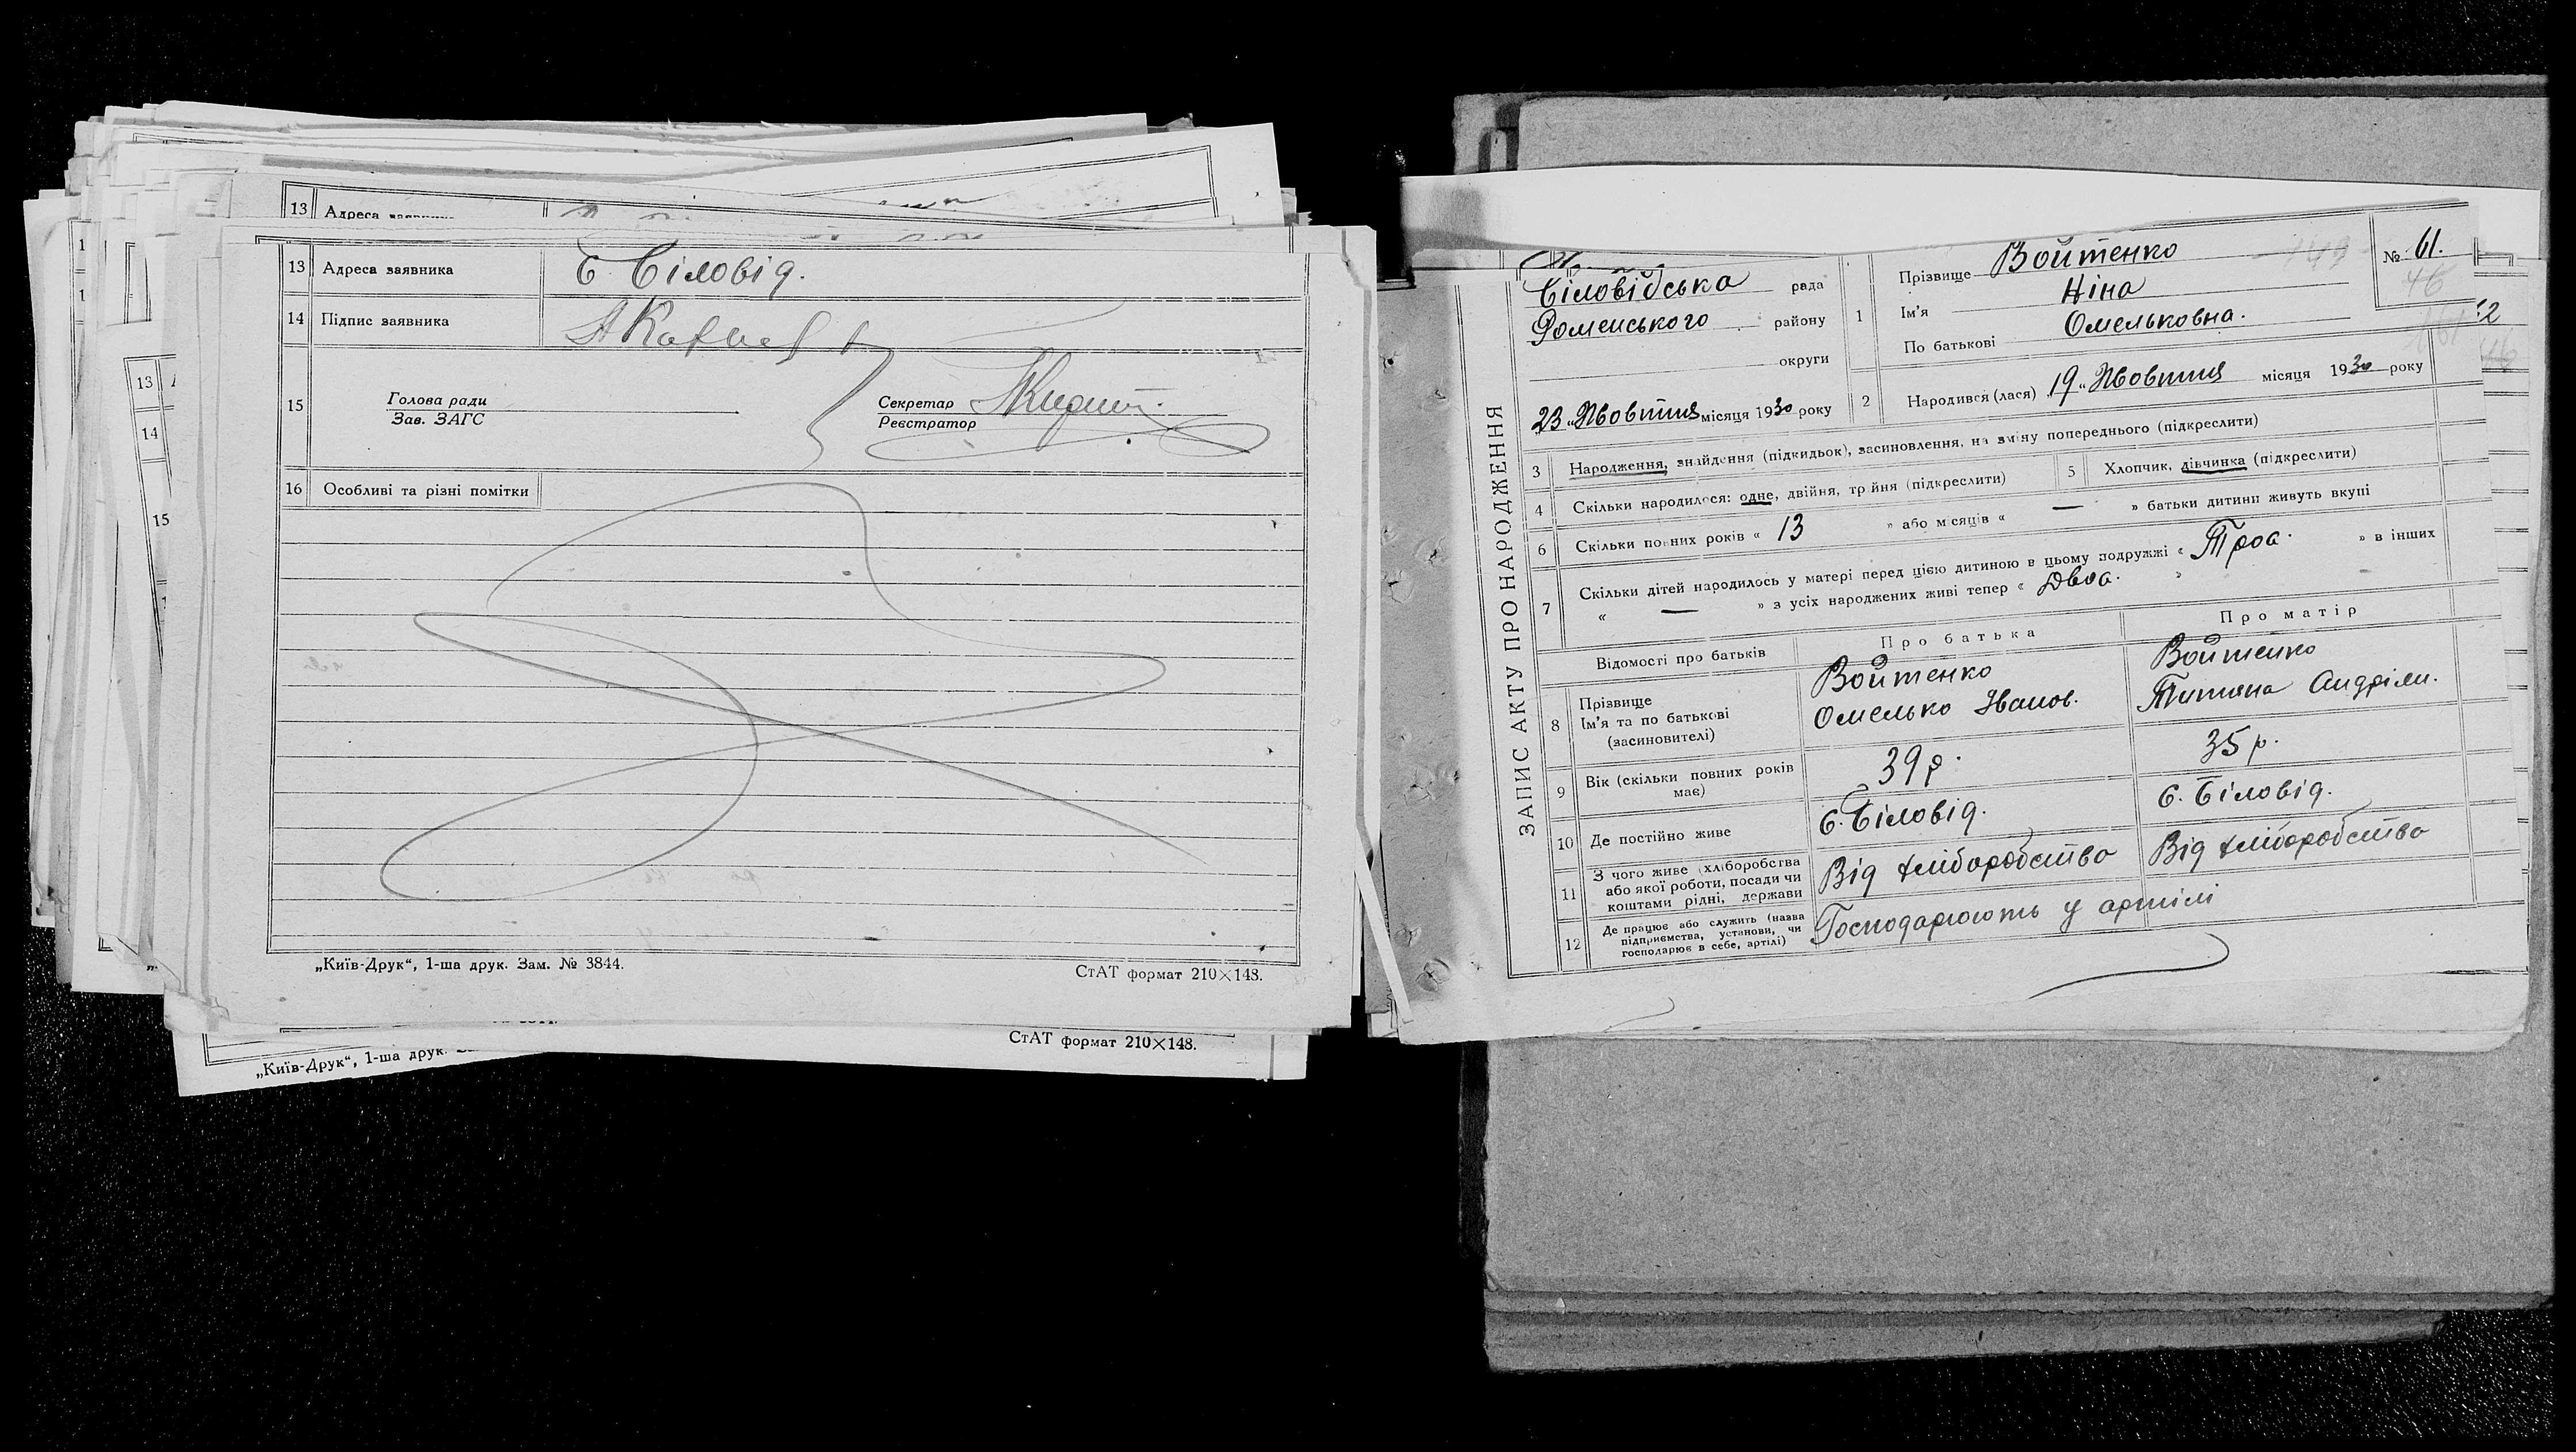 13 Адреса
13 Адреса заявника С. Біловід.
14 Підпис заявника
15 Голова ради
Зав. ЗАГС
Секретар
Реєстратор
16 Особливі та різні помітки
„Київ-Друк“, 1-ша друк. Зам. № 3844.
СтАТ формат 210×148.
СтАТ формат 210×148.
„Київ-Друк“, 1-ша друк.
13
14
15
ЗАПИС АКТУ ПРО НАРОДЖЕННЯ
Біловідська рада
Роменського району
округи
23 „Жовтня місяця 1930 року
№ 61.
46
1 Прізвище Войтенко
Ім'я Ніна
По батькові Омельковна.
2 Народився (лася) „19 „ Жовтня місяця 1930 року
3 Народження, знайдення (підкидьок), засиновлення, на зміну попереднього (підкреслити)
4 Скільки народилося: одне, двійня, трійня (підкреслити)
5 Хлопчик, дівчинка (підкреслити)
6 Скільки повних років « 13 » або місяців « — » батьки дитини живуть вкупі
7 Скільки дітей народилось у матері перед цією дитиною в цьому подружжі « Троа. » в інших
« — » з усіх народжених живі тепер « Двоа. »
Відомості про батьків Про батька Про матір
8 Прізвище Войтенко Войтенко
Ім'я та по батькові Омелько Іванов. Титяна Андріян.
(засиновителі)
9 Вік (скільки повних років має) 39 р. 35 р.
10 Де постійно живе С. Біловід. С. Біловід.
11 З чого живе (хліборобства
або якої роботи, посади чи
коштами рідні, держави Від хліборобства Від хліборобства
12 Де працює або служить (назва
підприємства, установи, чи
господарює в себе, артілі) Господарюють у артілі